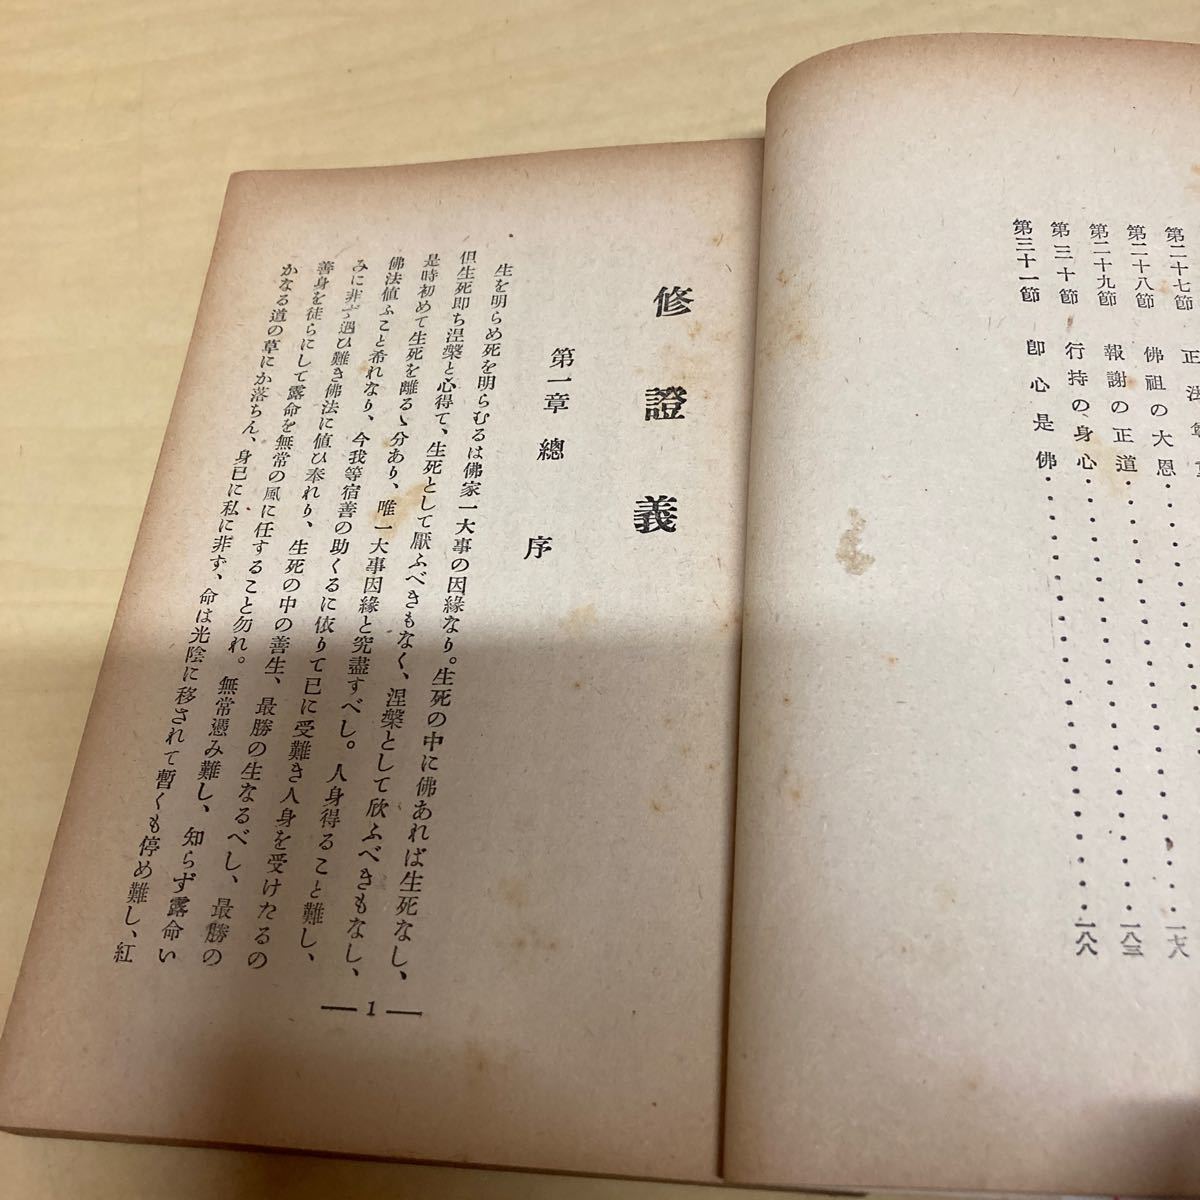 第二十七節 正法
第二十八節 佛祖の大恩
第二十九節 報謝の正道
第三十節 行持の身心
第三十一節 卽心是佛
修證義
第一章 總序
生を明らめ死を明らむるは佛家一大事の因緣なり。生死の中に佛あれば生死なし、
但生死卽ち涅槃と心得て、生死として厭ふべきもなく、涅槃として欣ふべきもなし、
是時初めて生死を離るゝ分あり、唯一大事因緣と究盡すべし。人身得ること難し、
佛法値ふこと希れなり、今我等宿善の助くるに依りて已に受難き人身を受けたるの
みに非ず遇ひ難き佛法に値ひ奉れり、生死の中の善生、最勝の生なるべし、最勝の
善身を徒らにして露命を無常の風に任すること勿れ。無常憑み難し、知らず露命い
かなる道の草にか落ちん、身已に私に非ず、命は光陰に移されて暫くも停め難し、紅
— 1 —